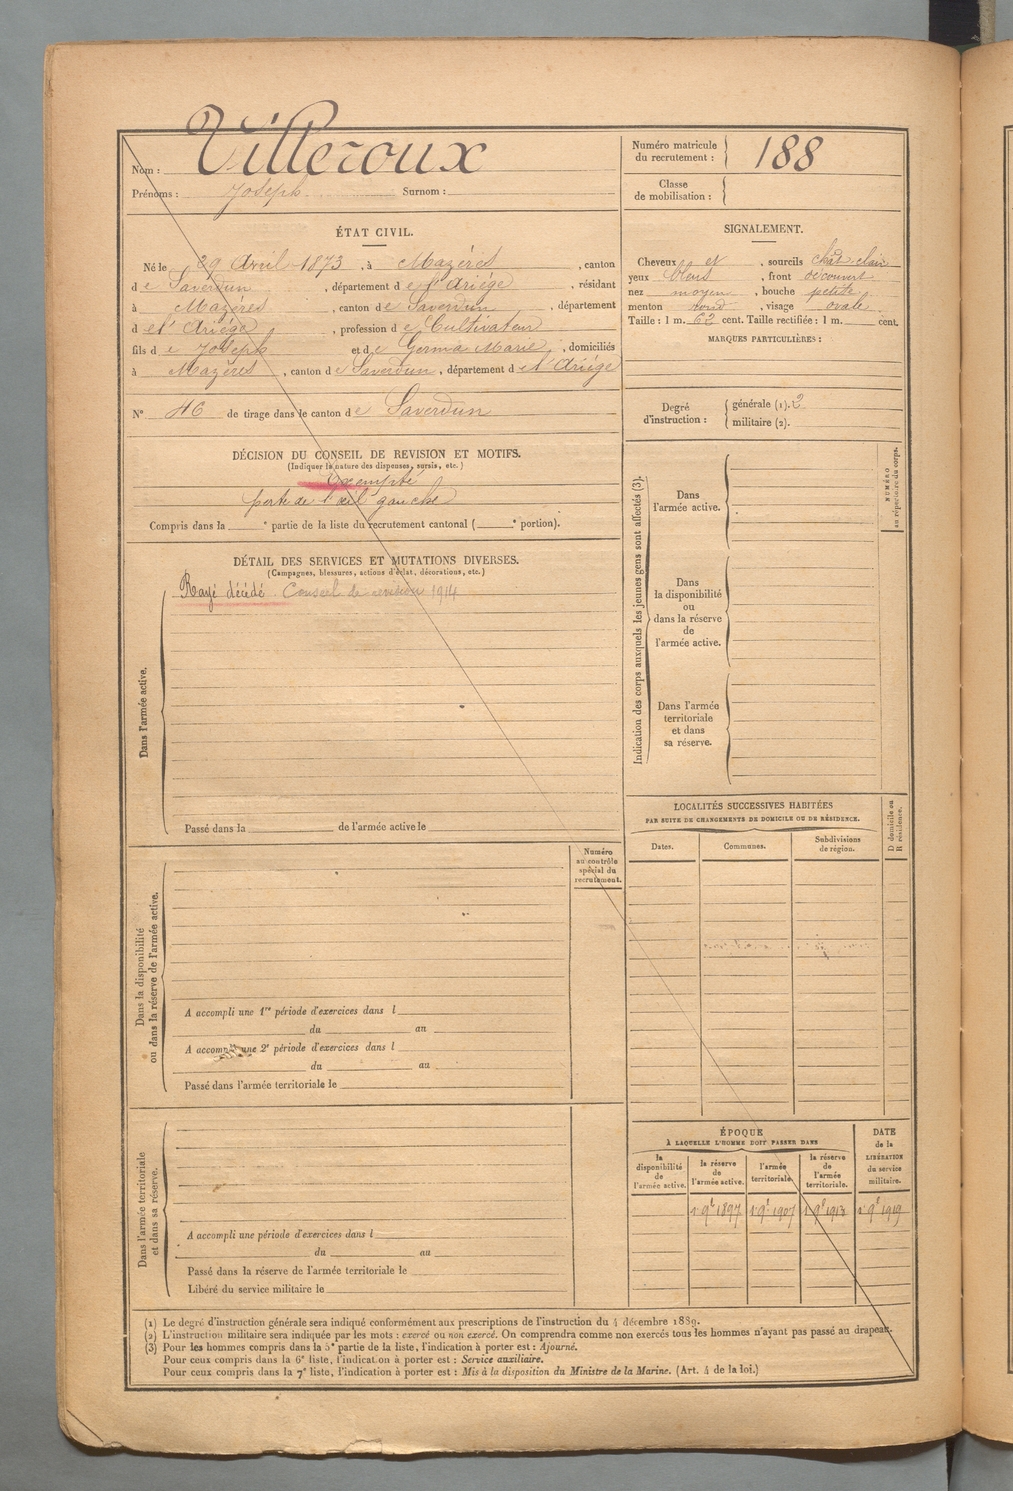 Nom : Villeroux
Prénoms : Joseph Surnom :
Numéro matricule du recrutement : 188
Classe de mobilisation :
ÉTAT CIVIL.
Né le 29 Avril 1873, à Mazères, canton
de Saverdun, département de l'Ariége, résidant
à Mazères, canton de Saverdun, département
de l'Ariége, profession de Cultivateur
fils de Joseph et de Germa Marie, domiciliés
à Mazères, canton de Saverdun, département de l'Ariége
N° 46 de tirage dans le canton de Saverdun
SIGNALEMENT.
Cheveux et, sourcils chât clair
yeux bleus, front découvert
nez moyen, bouche petite
menton rond, visage ovale
Taille : 1 m. 62 cent. Taille rectifiée : 1 m. cent.
MARQUES PARTICULIÈRES :
Degré d'instruction : générale (1). 2
militaire (2).
DÉCISION DU CONSEIL DE REVISION ET MOTIFS.
(Indiquer la nature des dispenses, sursis, etc.)
Exempté
perte de l'œil gauche
Compris dans la e partie de la liste du recrutement cantonal ( e portion).
DÉTAIL DES SERVICES ET MUTATIONS DIVERSES.
(Campagnes, blessures, actions d'éclat, décorations, etc.)
Rayé décédé. Conseil de revision 1914
Dans l'armée active.
Passé dans la de l'armée active le
Numéro au contrôle spécial du recrutement.
Dans la disponibilité
ou dans la réserve de l'armée active.
A accompli une 1re période d'exercices dans l
du au
A accompli une 2e période d'exercices dans l
du au
Passé dans l'armée territoriale le
Dans l'armée territoriale
et dans sa réserve.
A accompli une période d'exercices dans l
du au
Passé dans la réserve de l'armée territoriale le
Libéré du service militaire le
Indication des corps auxquels les jeunes gens sont affectés (3).
NUMÉRO au répertoire du corps.
Dans
l'armée active.
Dans
la disponibilité
ou
dans la réserve
de
l'armée active.
Dans l'armée
territoriale
et dans
sa réserve.
LOCALITÉS SUCCESSIVES HABITÉES
PAR SUITE DE CHANGEMENTS DE DOMICILE OU DE RÉSIDENCE.
D domicile ou
R résidence.
Dates. Communes. Subdivisions de région.
ÉPOQUE
À LAQUELLE L'HOMME DOIT PASSER DANS
DATE de la LIBÉRATION du service militaire.
la disponibilité de l'armée active.
la réserve de l'armée active.
l'armée territoriale.
la réserve de l'armée territoriale.
1 9e 1897 1 9e 1907 1 9e 1913 1 9e 1919
(1) Le degré d'instruction générale sera indiqué conformément aux prescriptions de l'instruction du 4 décembre 1889.
(2) L'instruction militaire sera indiquée par les mots : exercé ou non exercé. On comprendra comme non exercés tous les hommes n'ayant pas passé au drapeau.
(3) Pour les hommes compris dans la 5e partie de la liste, l'indication à porter est : Ajourné.
Pour ceux compris dans la 6e liste, l'indication à porter est : Service auxiliaire.
Pour ceux compris dans la 7e liste, l'indication à porter est : Mis à la disposition du Ministre de la Marine. (Art. 4 de la loi.)